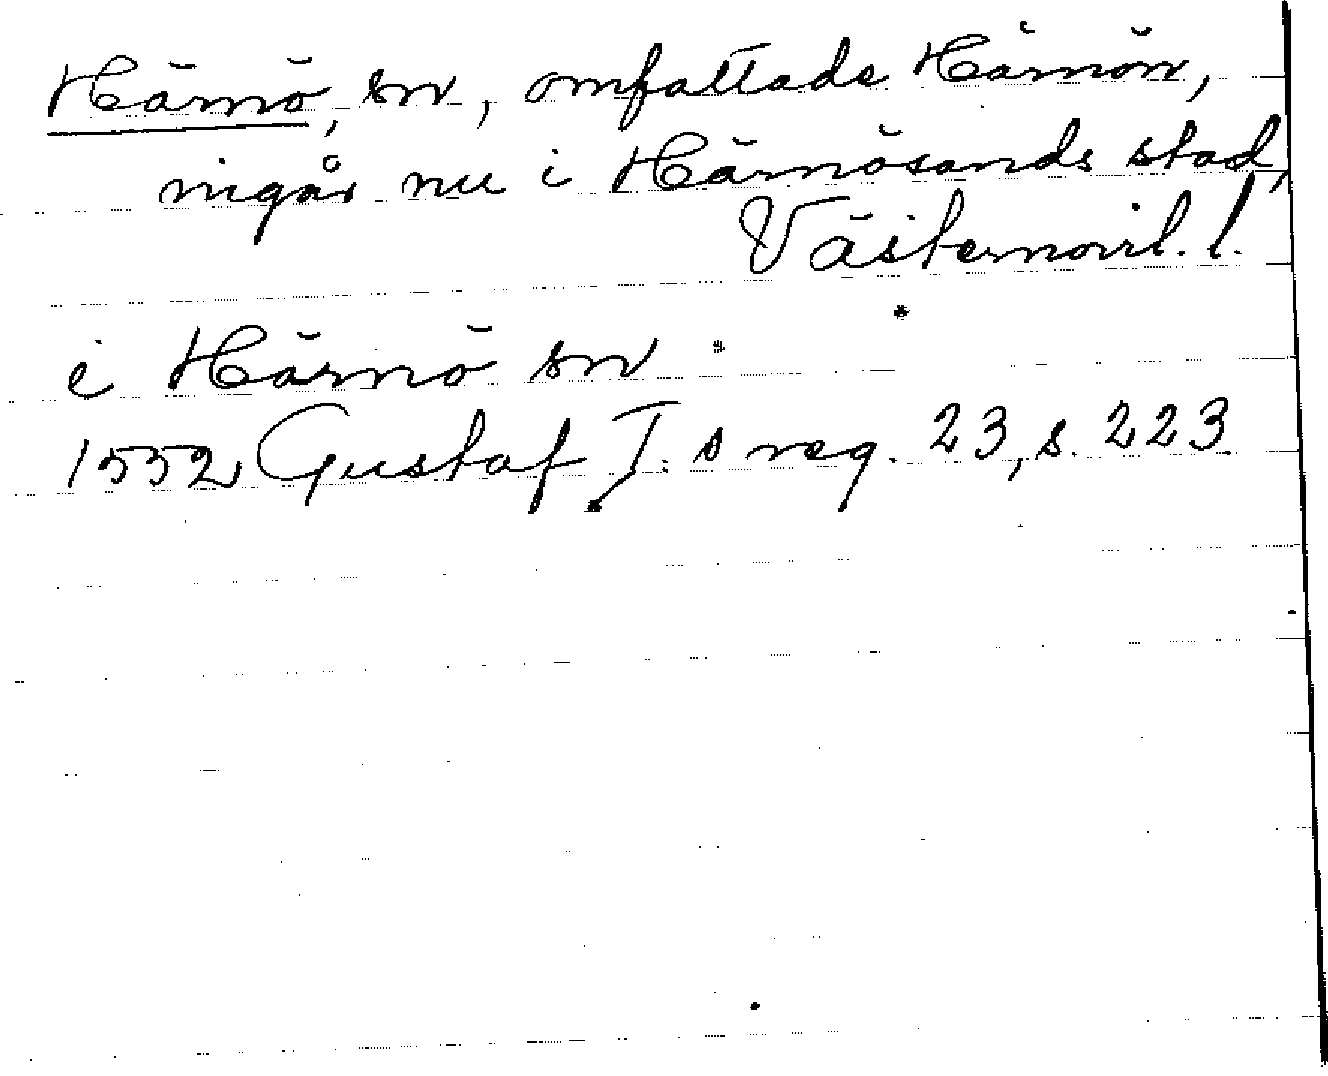 Härnö, sn, omfattade Härnön,
ingår nu i Härnösands stad,
Västernorrl. l.
i Härnö sn
1552 Gustaf I:s reg. 23, s. 223